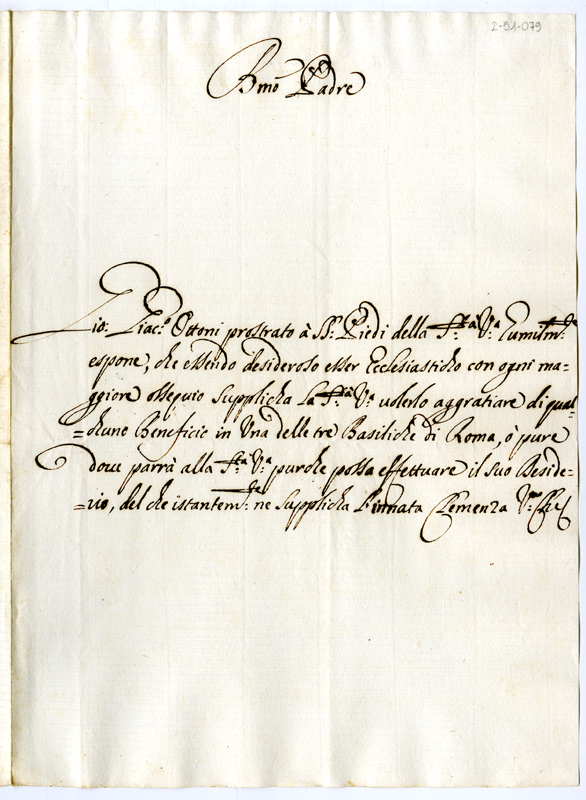 2-51-079
Bmo Padre
Gio: Giac.o Ottoni prostrato à SS: Piedi della S.tà V.a humilm.te
espone, che essendo desideroso esser Ecclesiasticho con ogni ma=
ggiore ossequio supplicha la S.tà V.a volerlo aggratiare di qual=
=chuno Beneficio in Una delle tre Basiliche di Roma, ò pure
dove parrà alla S.tà V.a purche possa effettuare il suo Deside=
=rio, del che istantem.te ne supplicha l'innata Clemenza V.ra Che